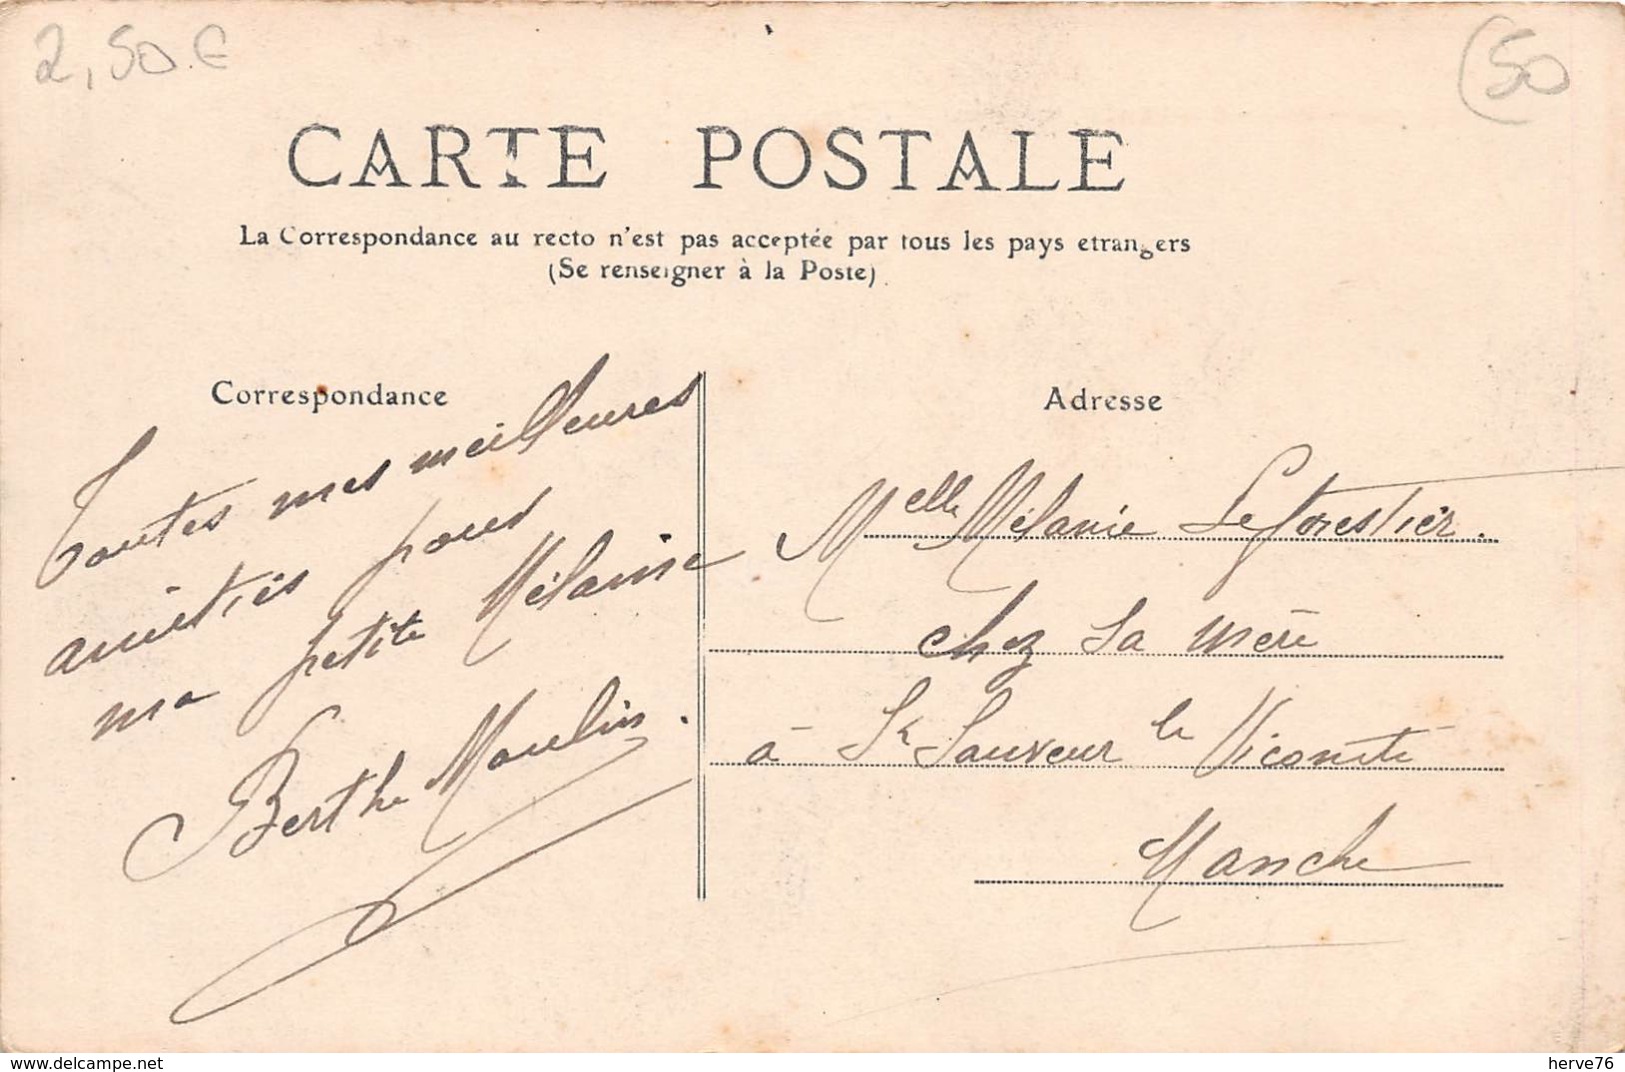 2,50 €
50
CARTE POSTALE
La Correspondance au recto n'est pas acceptée par tous les pays etrangers
(Se renseigner à la Poste)
Correspondance
Toutes mes meilleures
amitiés pour
ma petite Mélanie
Berthe Moulin.
Adresse
Melle Mélanie Leforestier.
chez sa mère
à St Sauveur le Vicomte
Manche
www.delcampe.net
herve76